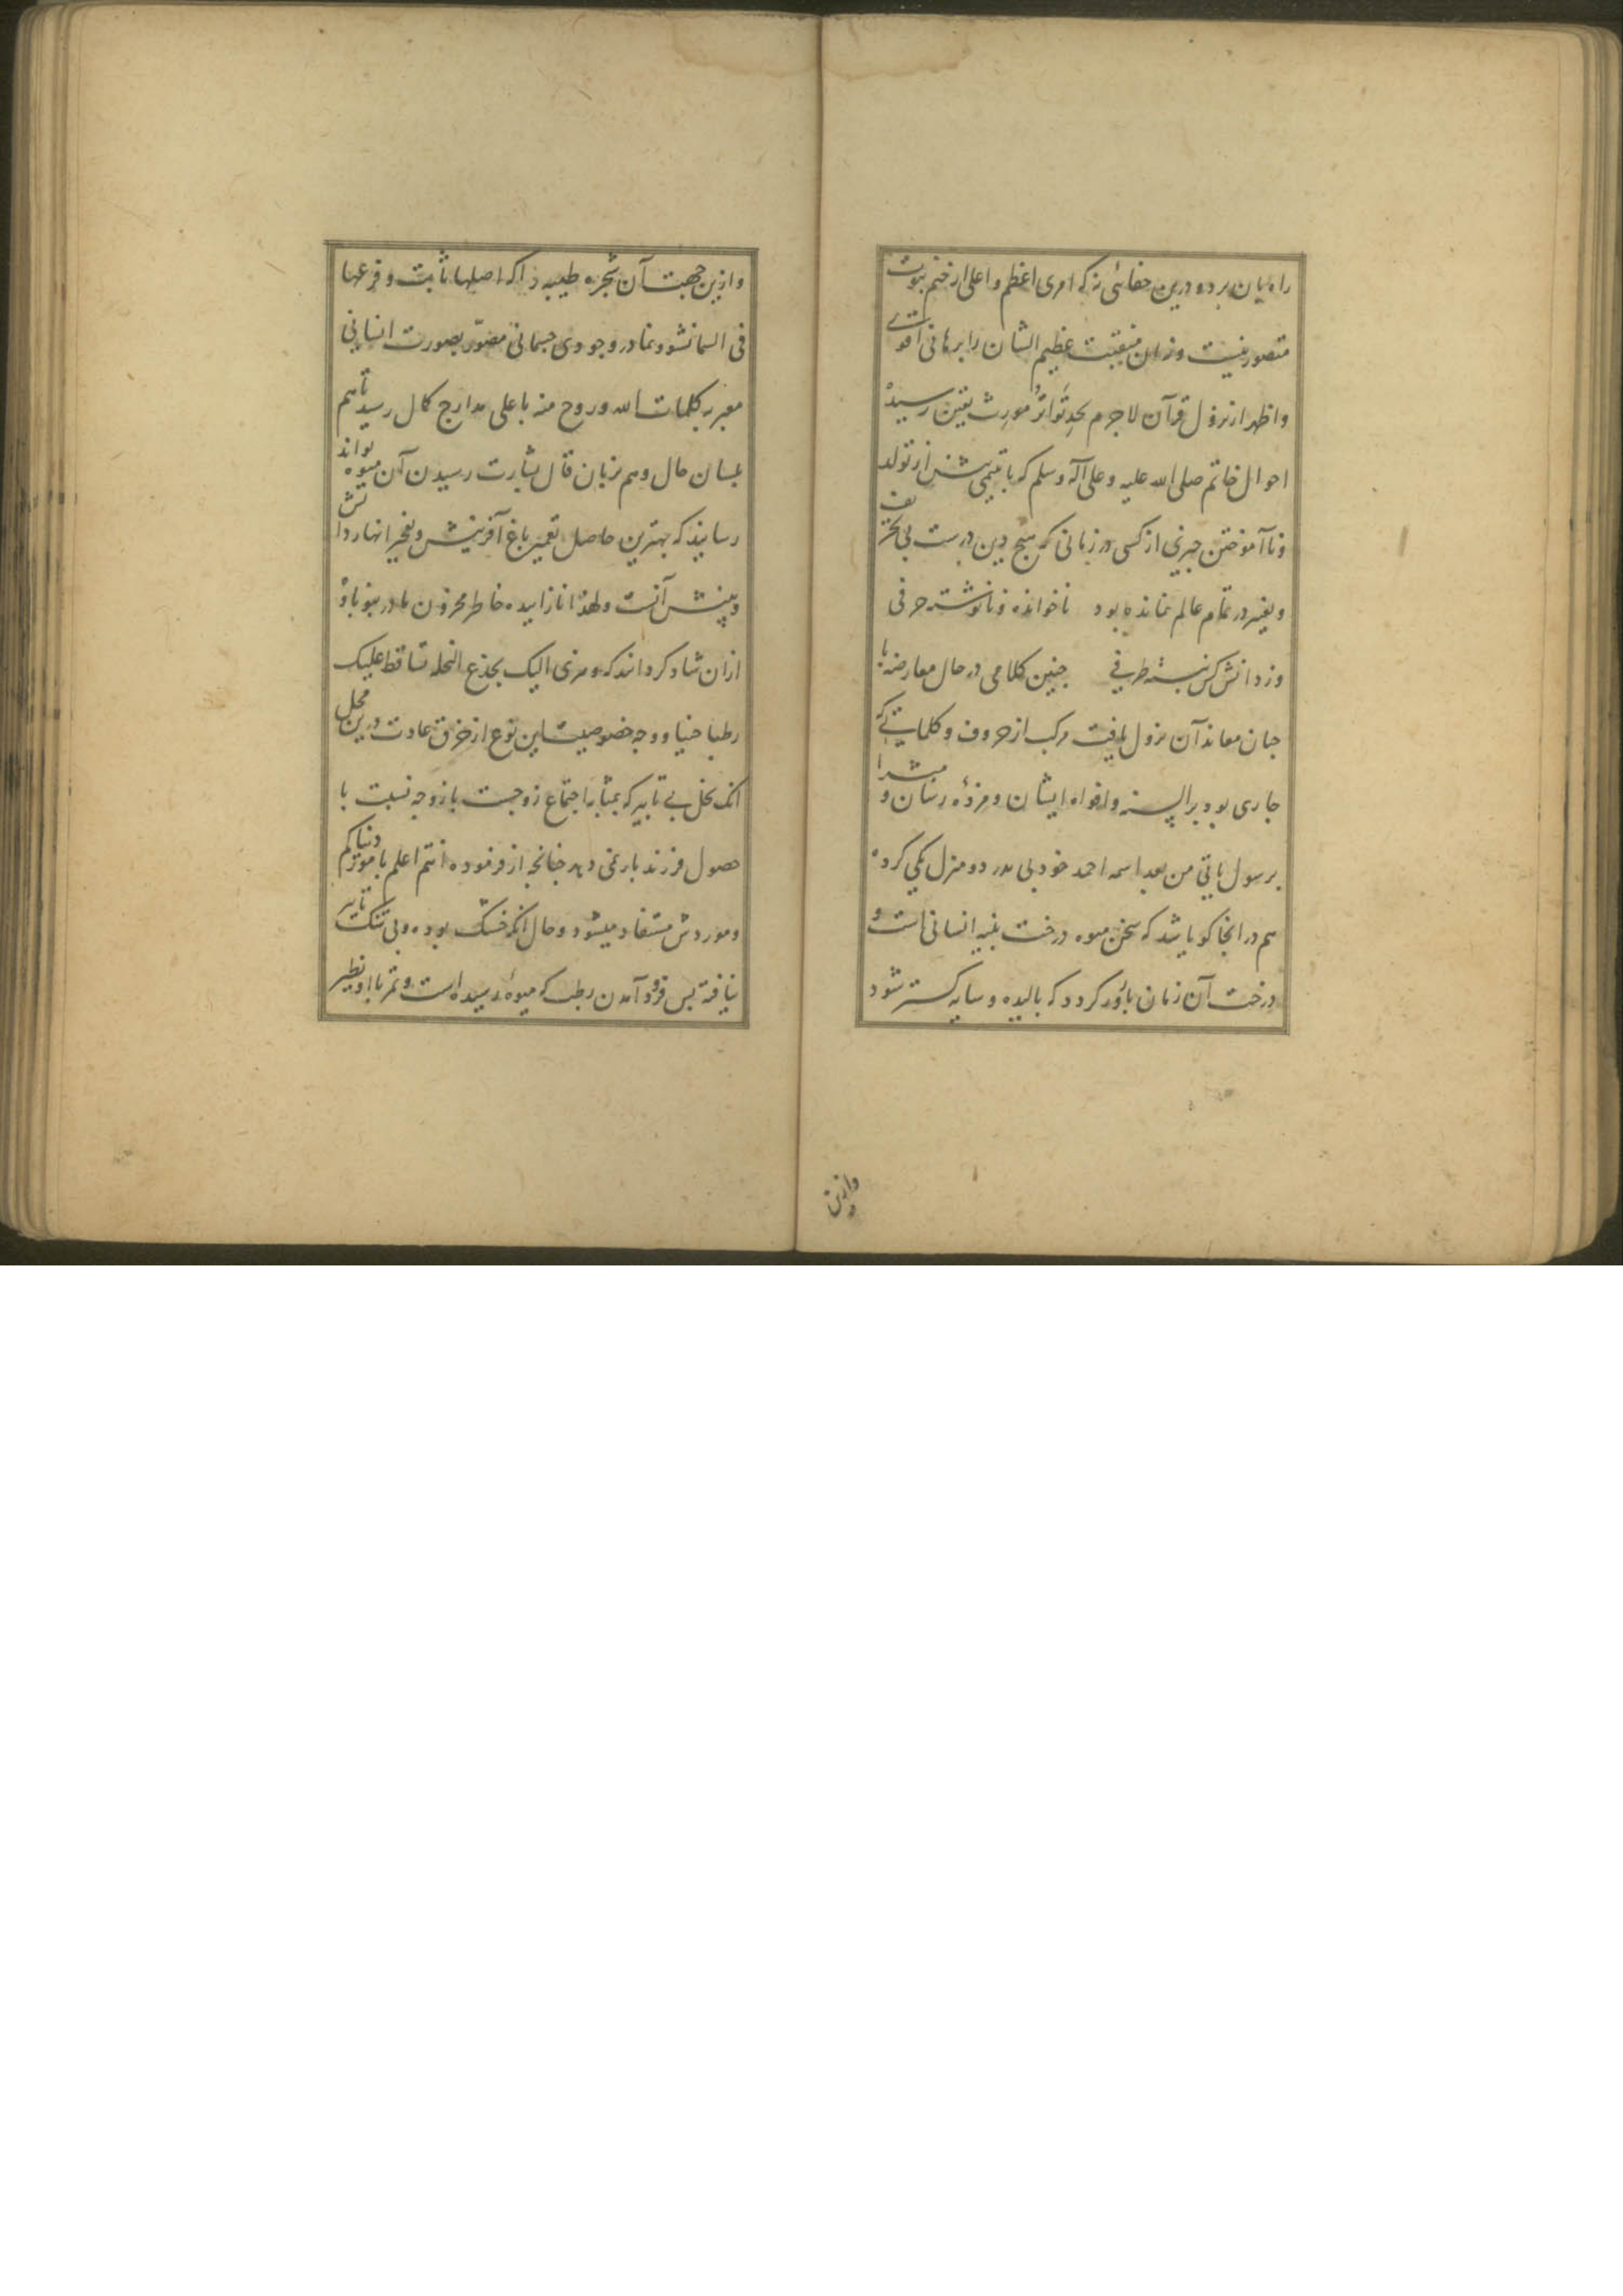 راه بان برد و درین خفائی نه که امری اعظم و اعلی از ختم نبوت
متصور نیست و زان منقبت عظیم الشان را برهانی اقوی
و اظهر از نزول قرآن لاجرم بحد تواتر مورث یقین رسیده
احوال خاتم صلی الله علیه و علی آله و سلم که با یتیمی پیش از تولد
و ناآموختن چیزی از کسی در زمانی که هیچ دین درست بی تحریف
و تغییر در تمام عالم نمانده بود ناخوانده و نانوشته حرفی
وز دانش کس نبسته طرفی چنین کلامی در حال معارضه با
جان معاند آن نزول یافت مرکب از حروف و کلماتی که
جاری بود بر السنه و افواه ایشان و مژده رسان و مبشرا
برسول یاتی من بعد اسمه احمد خود بی پدر دو منزل یکی کرده
هم در انجا کویا شد که سخن میوه درخت بنیه انسانی است و
درخت آن زمان بارور کردد که بالیده و سایه کستر شود
وازین
وازین جهت آن شجره طیبه را که اصلها ثابت و فرعها
فی السما نشو و نما در وجودی جسمانی مصوّر بصورت انسانی
معبر به کلمات الله و روح منه با علی مدارج کمال رسید تا هم
بلسان حال و هم بزبان قال بشارت رسیدن آن میوه تواند
رسانید که بهترین حاصل تعمیر باغ آفرینش و تفجیر انهار دانش
و بینش آنست و لهذا نازاییده خاطر محزون مادر بنوباوه
ازان شاد کرداند که و هزی الیک بجذع النخله تساقط علیک
رطبا جنیا و وجه خصوصیت این نوع از خرق عادت درین محل
انک نخل بی تابیر که بمثابه اجتماع زوجست با زوجه نسبت با
حصول فرزند بار نمی دهد چنانچه از فرموده انتم اعلم بامور دنیاکم
و موردش مستفاد میشود و حال انکه خشک بوده و بی شک تابیر
نیافته پس فرود آمدن رطب که میوه رسیده است و ثمر بااو نظیر